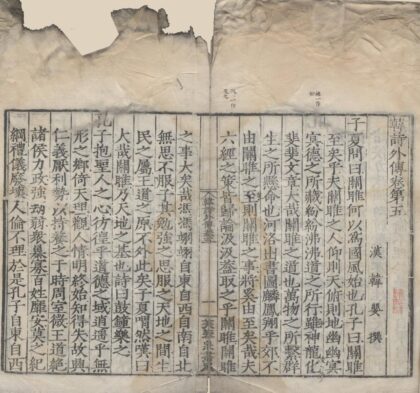 韓詩外傳卷第五
漢 韓嬰 撰
子夏問曰關雎何以為國風始也孔子曰關雎
至矣乎夫關雎之人仰則天俯則地幽幽冥
冥德之所藏紛紛沸沸道之所行雖神龍化
斐斐文章大哉關雎之道也萬物之所繫群
生之所懸命也河洛出書圖麟鳳翔乎郊不
由關雎之道則關雎之事將奚由至矣哉夫
六經之策皆歸論汲汲蓋取之乎關雎關雎
之事大矣哉馮馮翊翊自東自西自南自北
無思不服子其勉強之思服之天地之間生
民之屬王道之原不外此矣子夏喟然嘆曰
大哉關雎乃天地之基也詩曰鼓鐘樂之
孔子抱聖人之心彷徨乎道德之域逍遙乎無
形之鄉倚天理觀人情明終始知得失故興
仁義厭利勢以持養之于時周室微王道絕
諸侯力政強劫弱眾暴寡百姓靡安莫之紀
綱禮儀廢壞人倫不理於是孔子自東自西